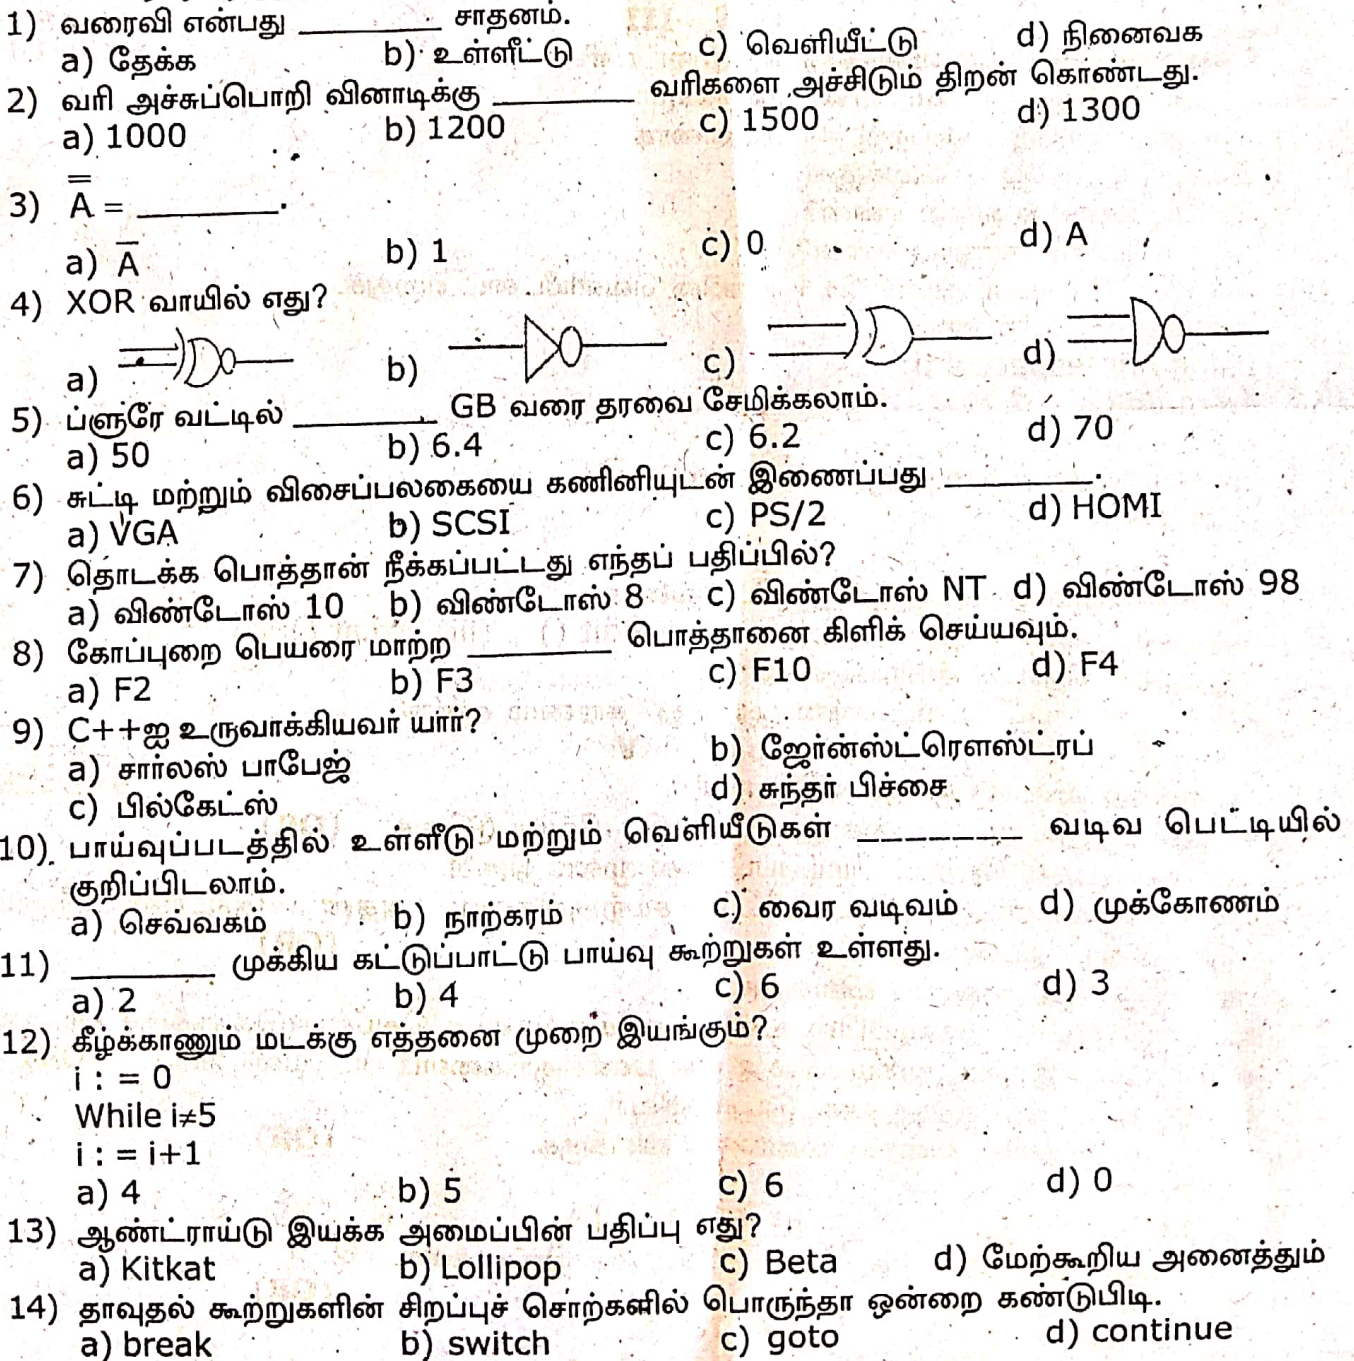 1) வரைவி என்பது __________ சாதனம்.
a) தேக்க b) உள்ளீட்டு c) வெளியீட்டு d) நினைவக
2) வரி அச்சுப்பொறி வினாடிக்கு __________ வரிகளை அச்சிடும் திறன் கொண்டது.
a) 1000 b) 1200 c) 1500 d) 1300
3) A̿ = __________.
a) A̅ b) 1 c) 0 d) A
4) XOR வாயில் எது?
a) b) c) d)
5) ப்ளுரே வட்டில் __________ GB வரை தரவை சேமிக்கலாம்.
a) 50 b) 6.4 c) 6.2 d) 70
6) சுட்டி மற்றும் விசைப்பலகையை கணினியுடன் இணைப்பது __________.
a) VGA b) SCSI c) PS/2 d) HOMI
7) தொடக்க பொத்தான் நீக்கப்பட்டது எந்தப் பதிப்பில்?
a) விண்டோஸ் 10 b) விண்டோஸ் 8 c) விண்டோஸ் NT d) விண்டோஸ் 98
8) கோப்புறை பெயரை மாற்ற __________ பொத்தானை கிளிக் செய்யவும்.
a) F2 b) F3 c) F10 d) F4
9) C++ஐ உருவாக்கியவர் யார்?
a) சார்லஸ் பாபேஜ் b) ஜேர்ன்ஸ்ட்ரௌஸ்ட்ரப்
c) பில்கேட்ஸ் d) சுந்தர் பிச்சை
10) பாய்வுப்படத்தில் உள்ளீடு மற்றும் வெளியீடுகள் _______ வடிவ பெட்டியில்
குறிப்பிடலாம்.
a) செவ்வகம் b) நாற்கரம் c) வைர வடிவம் d) முக்கோணம்
11) __________ முக்கிய கட்டுப்பாட்டு பாய்வு கூற்றுகள் உள்ளது.
a) 2 b) 4 c) 6 d) 3
12) கீழ்க்காணும் மடக்கு எத்தனை முறை இயங்கும்?
i : = 0
While i≠5
i : = i+1
a) 4 b) 5 c) 6 d) 0
13) ஆண்ட்ராய்டு இயக்க அமைப்பின் பதிப்பு எது?
a) Kitkat b) Lollipop c) Beta d) மேற்கூறிய அனைத்தும்
14) தாவுதல் கூற்றுகளின் சிறப்புச் சொற்களில் பொருந்தா ஒன்றை கண்டுபிடி.
a) break b) switch c) goto d) continue